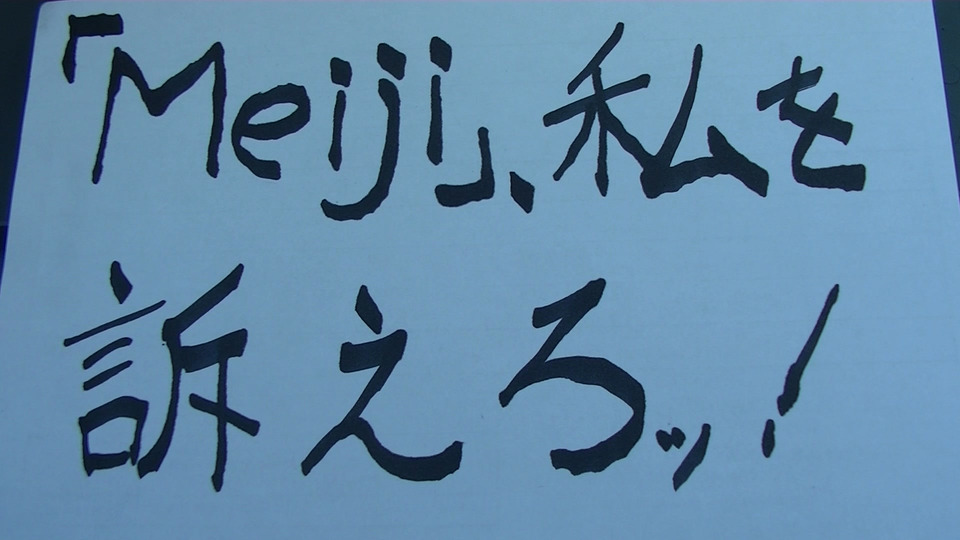 「Meiji」、私を
訴えろッ!